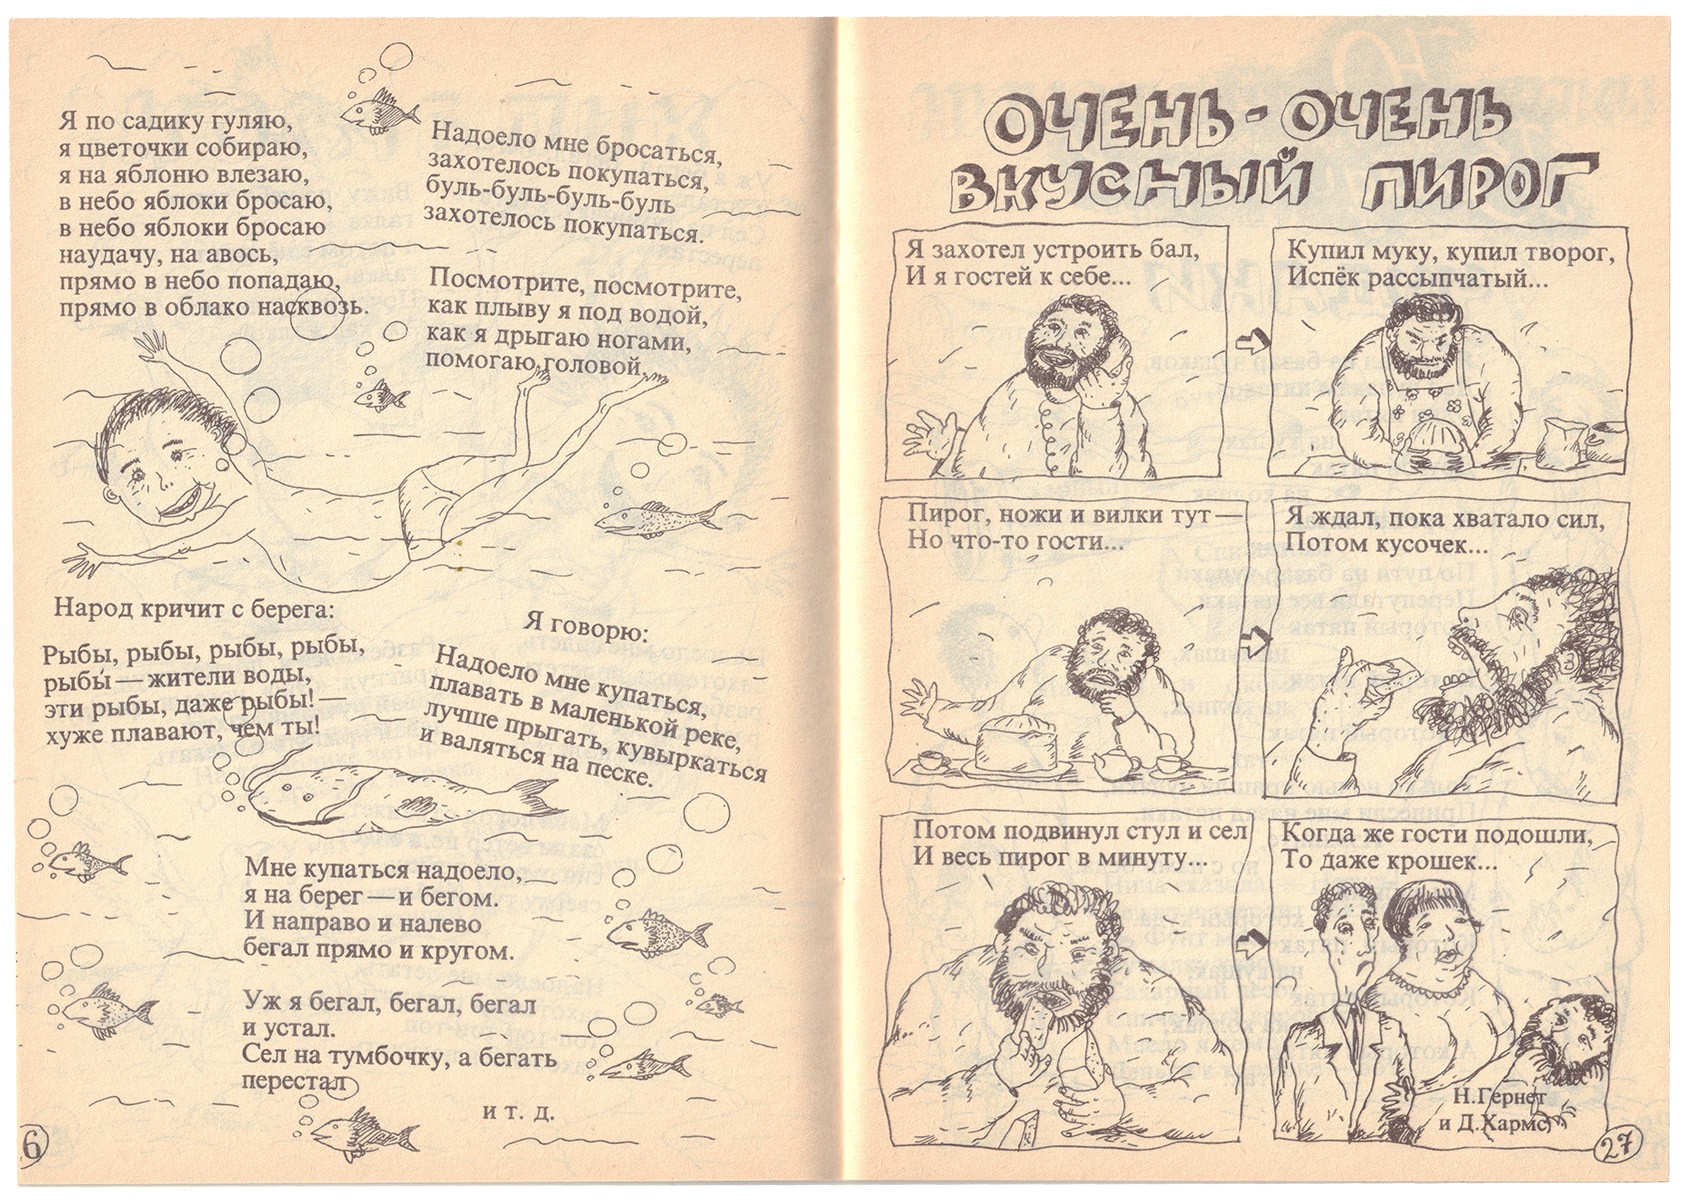 Я по садику гуляю,
я цветочки собираю,
я на яблоню влезаю,
в небо яблоки бросаю,
в небо яблоки бросаю
наудачу, на авось,
прямо в небо попадаю,
прямо в облако насквозь.
Надоело мне бросаться,
захотелось покупаться,
буль-буль-буль-буль
захотелось покупаться.
Посмотрите, посмотрите,
как плыву я под водой,
как я дрыгаю ногами,
помогаю головой.
Народ кричит с берега:
Рыбы, рыбы, рыбы, рыбы,
рыбы — жители воды,
эти рыбы, даже рыбы! —
хуже плавают, чем ты!
Я говорю:
Надоело мне купаться,
плавать в маленькой реке,
лучше прыгать, кувыркаться
и валяться на песке.
Мне купаться надоело,
я на берег — и бегом.
И направо и налево
бегал прямо и кругом.
Уж я бегал, бегал, бегал
и устал.
Сел на тумбочку, а бегать
перестал
и т. д.
6
ОЧЕНЬ-ОЧЕНЬ
ВКУСНЫЙ ПИРОГ
Я захотел устроить бал,
И я гостей к себе...
Купил муку, купил творог,
Испёк рассыпчатый...
Пирог, ножи и вилки тут —
Но что-то гости...
Я ждал, пока хватало сил,
Потом кусочек...
Потом подвинул стул и сел
И весь пирог в минуту...
Когда же гости подошли,
То даже крошек...
Н.Гернет
и Д.Хармс
27